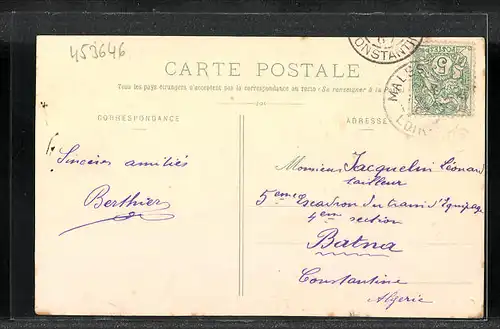 453646
CONSTANTI
CARTE POSTALE
Tous les pays étrangers n'acceptent pas la correspondance au recto (Se renseigner à la
CORRESPONDANCE
ADRESSE
5
MALES
LOIR
Sincères amitiés
Berthier
Monsieur Jacquelin Léonard
tailleur
5eme Escadron du train d'Equipage
4em section
Batna
Constantine
Algérie